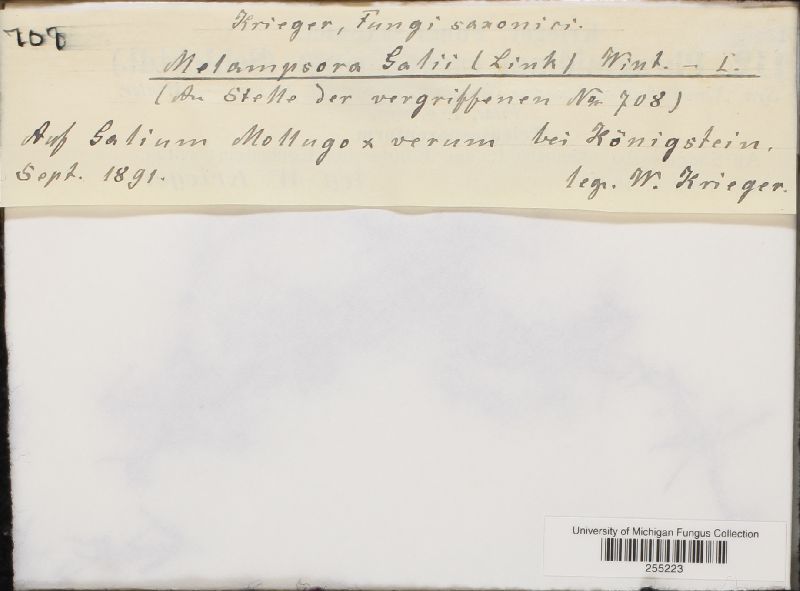 Krieger, Fungi saxonici.
708
Melampsora Galii (Link) Wint. - I.
(An Stelle der vergriffenen No. 708)
Auf Galium Mollugo x verum bei Königstein.
Sept. 1891. leg. W. Krieger.
University of Michigan Fungus Collection
255223